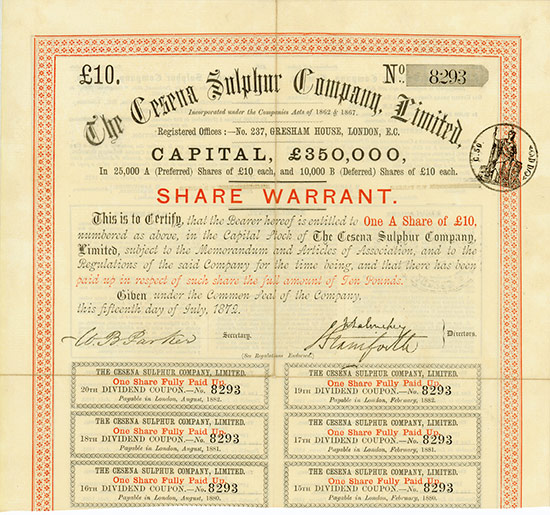 £10.
No. 8293
The Cesena Sulphur Company, Limited,
Incorporated under the Companies Acts of 1862 & 1867.
Registered Offices:—No. 237, GRESHAM HOUSE, LONDON, E.C.
CAPITAL, £350,000,
In 25,000 A (Preferred) Shares of £10 each, and 10,000 B (Deferred) Shares of £10 each.
SHARE WARRANT.
This is to Certify, that the Bearer hereof is entitled to One A Share of £10,
numbered as above, in the Capital Stock of The Cesena Sulphur Company,
Limited, subject to the Memorandum and Articles of Association, and to the
Regulations of the said Company for the time being, and that there has been
paid up in respect of such share the full amount of Ten Pounds.
Given under the Common Seal of the Company,
this fifteenth day of July, 1872.
W. B. Parker
Secretary.
Stamforth
Directors.
(See Regulations Endorsed.)
THE CESENA SULPHUR COMPANY, LIMITED.
One Share Fully Paid Up.
20TH DIVIDEND COUPON.—No. 8293
Payable in London, August, 1882.
THE CESENA SULPHUR COMPANY, LIMITED.
One Share Fully Paid Up.
19TH DIVIDEND COUPON.—No. 8293
Payable in London, February, 1882.
THE CESENA SULPHUR COMPANY, LIMITED.
One Share Fully Paid Up.
18TH DIVIDEND COUPON.—No. 8293
Payable in London, August, 1881.
THE CESENA SULPHUR COMPANY, LIMITED.
One Share Fully Paid Up.
17TH DIVIDEND COUPON.—No. 8293
Payable in London, February, 1881.
THE CESENA SULPHUR COMPANY, LIMITED.
One Share Fully Paid Up.
16TH DIVIDEND COUPON.—No. 8293
Payable in London, August, 1880.
THE CESENA SULPHUR COMPANY, LIMITED.
One Share Fully Paid Up.
15TH DIVIDEND COUPON.—No. 8293
Payable in London, February, 1880.